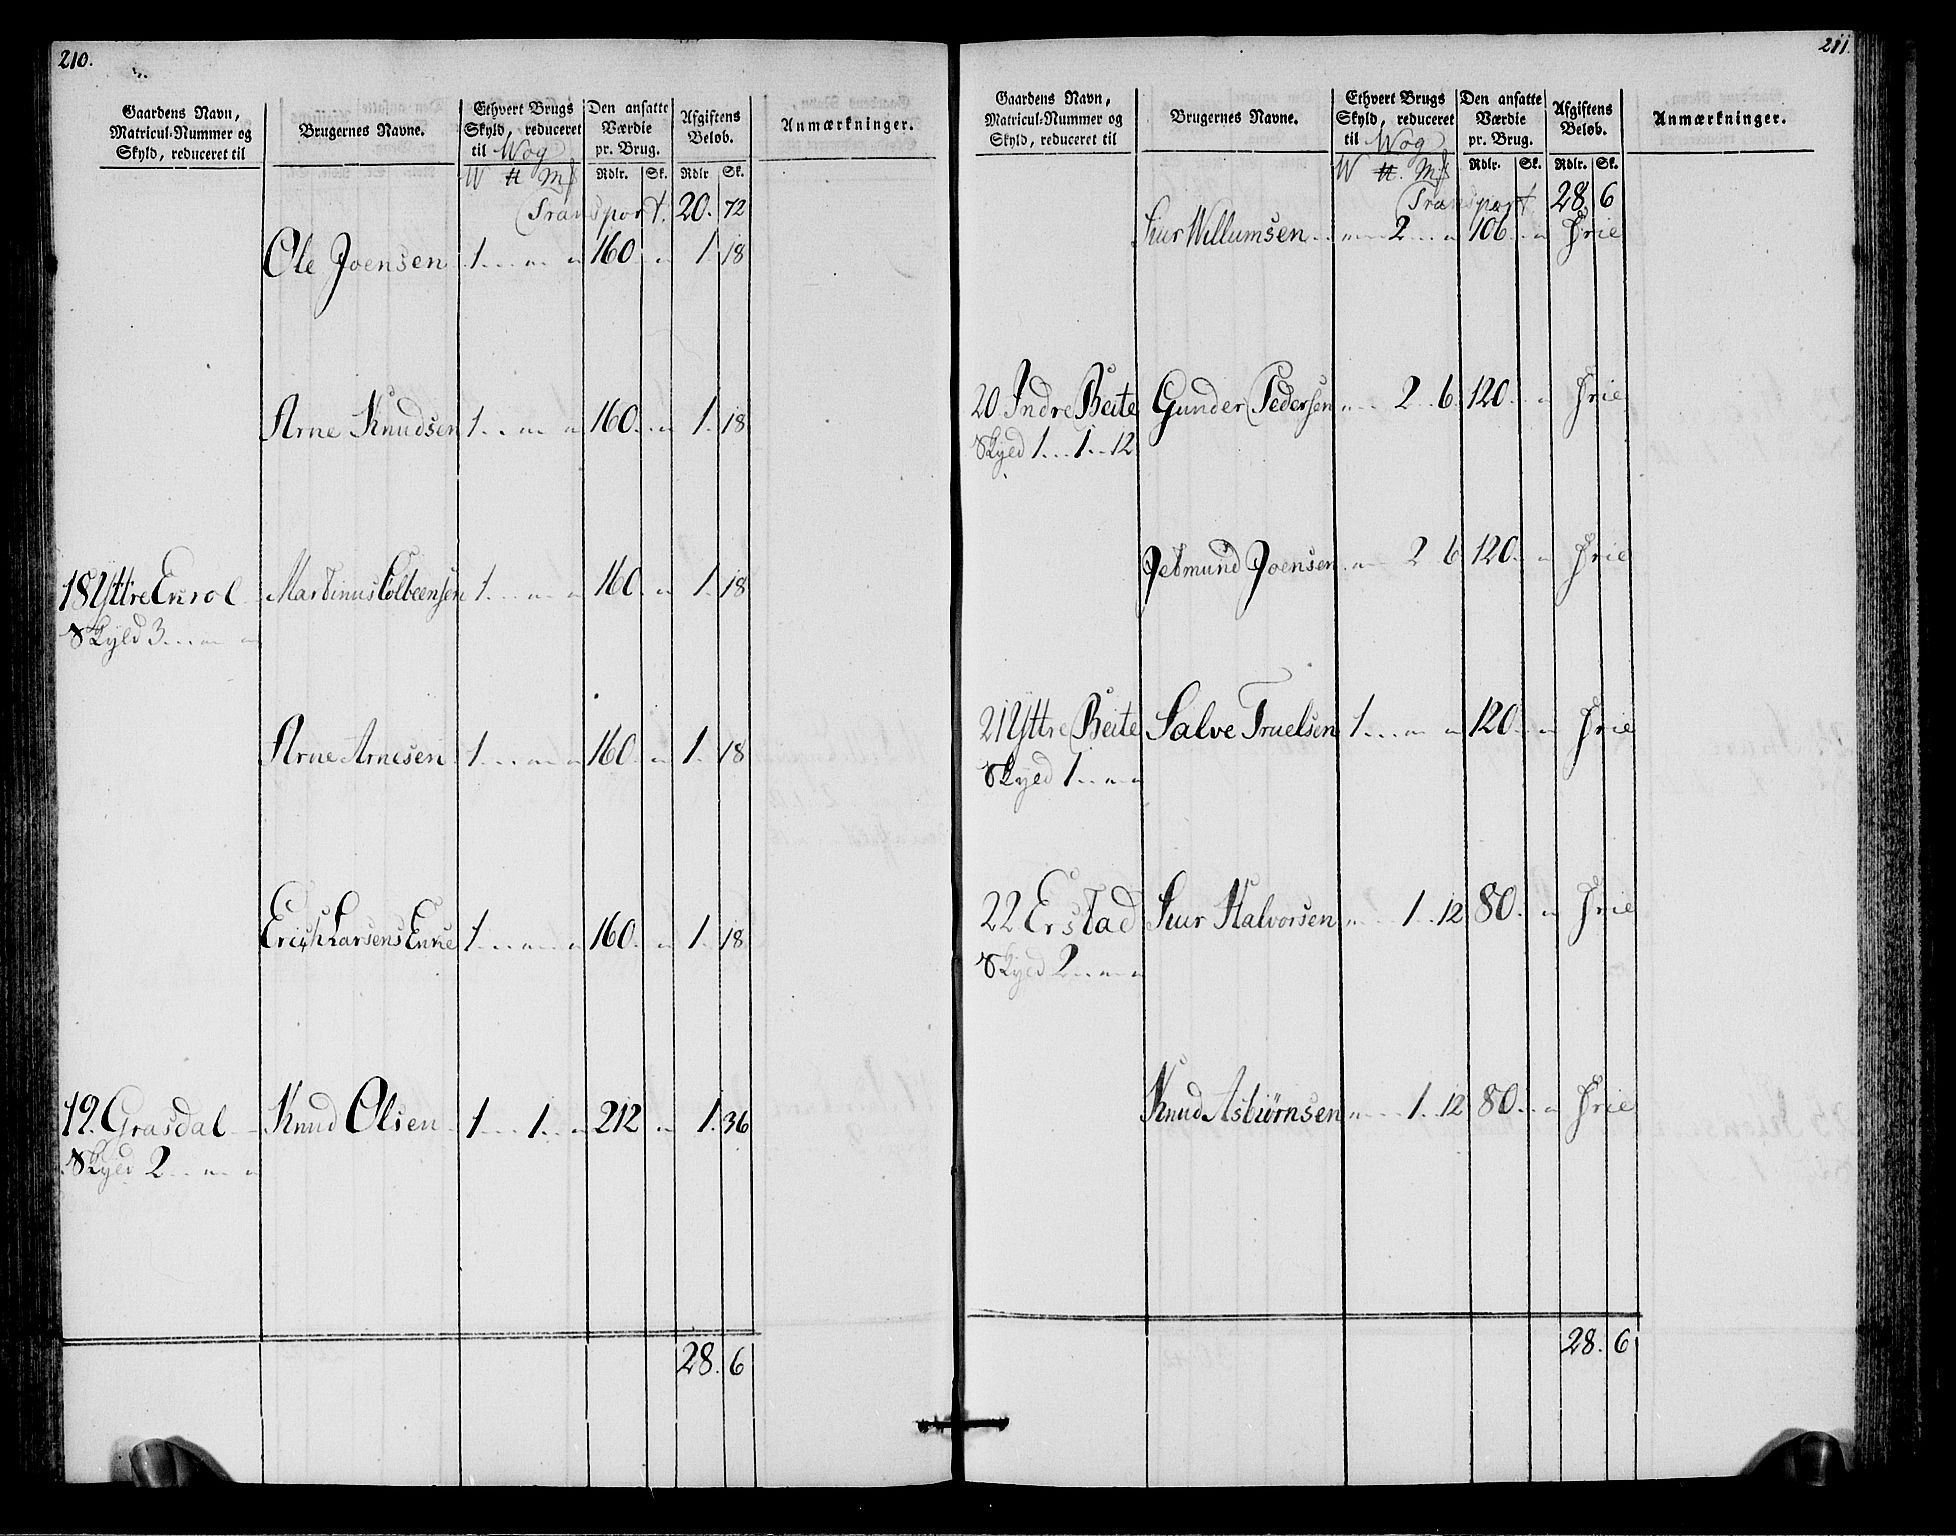 210.
Gaardens Navn,
Matricul-Nummer og
Skyld, reduceret til
Brugernes Navne.
Ethvert Brugs
Skyld, reduceret
til Wog
W ℔ Mk
Den ansatte
Værdie
pr. Brug.
Rdlr. Sk.
Afgiftens
Beløb.
Rdlr Sk.
Anmærkninger.
Transport. 20. 72
Ole Joensen 1 . . . „ „ 160 . „ 1 18
Arne Knudsen 1 . . „ „ 160 . „ 1. 18
18 Yttre Enrol Martinus Colbeensen 1 . . „ „ 160 . „ 1. 18
Skyld 3 . . . „ „
Arne Arnesen 1 . . . „ „ 160 . „ 1. 18
Erich Larsens Enke 1 . . . „ „ 160 . „ 1. 18
19. Grasdal Knud Olsen 1 . . 1 . . „ 212 „ 1. 36
Skyld 2 . . „ „
28. 6
211.
Gaardens Navn,
Matricul-Nummer og
Skyld, reduceret til
Brugernes Navne.
Ethvert Brugs
Skyld, reduceret
til Wog
W ℔. Mk
Den ansatte
Værdie
pr. Brug.
Rdlr. Sk.
Afgiftens
Beløb.
Rdlr. Sk.
Anmærkninger.
Transport. 28. 6
Siur Willumsen . . „ . . 2 . . „ 106 . . „ Frie
20 Indre Beite Gunder Pedersen „ . . 2 . . 6 120 . . „ Frie
Skyld 1 . . . 1 . . 12
Jetmund Joensen . „ 2 6 120 . . „ Frie
21 Yttre Beite Salve Truelsen 1 . . . „ „ 120 . . „ Frie
Skyld 1 . . „ „
22 Erstad Siur Halvorsen „ . . 1 . . 12 80 . . „ Frie
Skyld 2 . . „ „
Knud Asbiørnsen „ . . 1 . . 12 80 . . „ Frie
28. 6